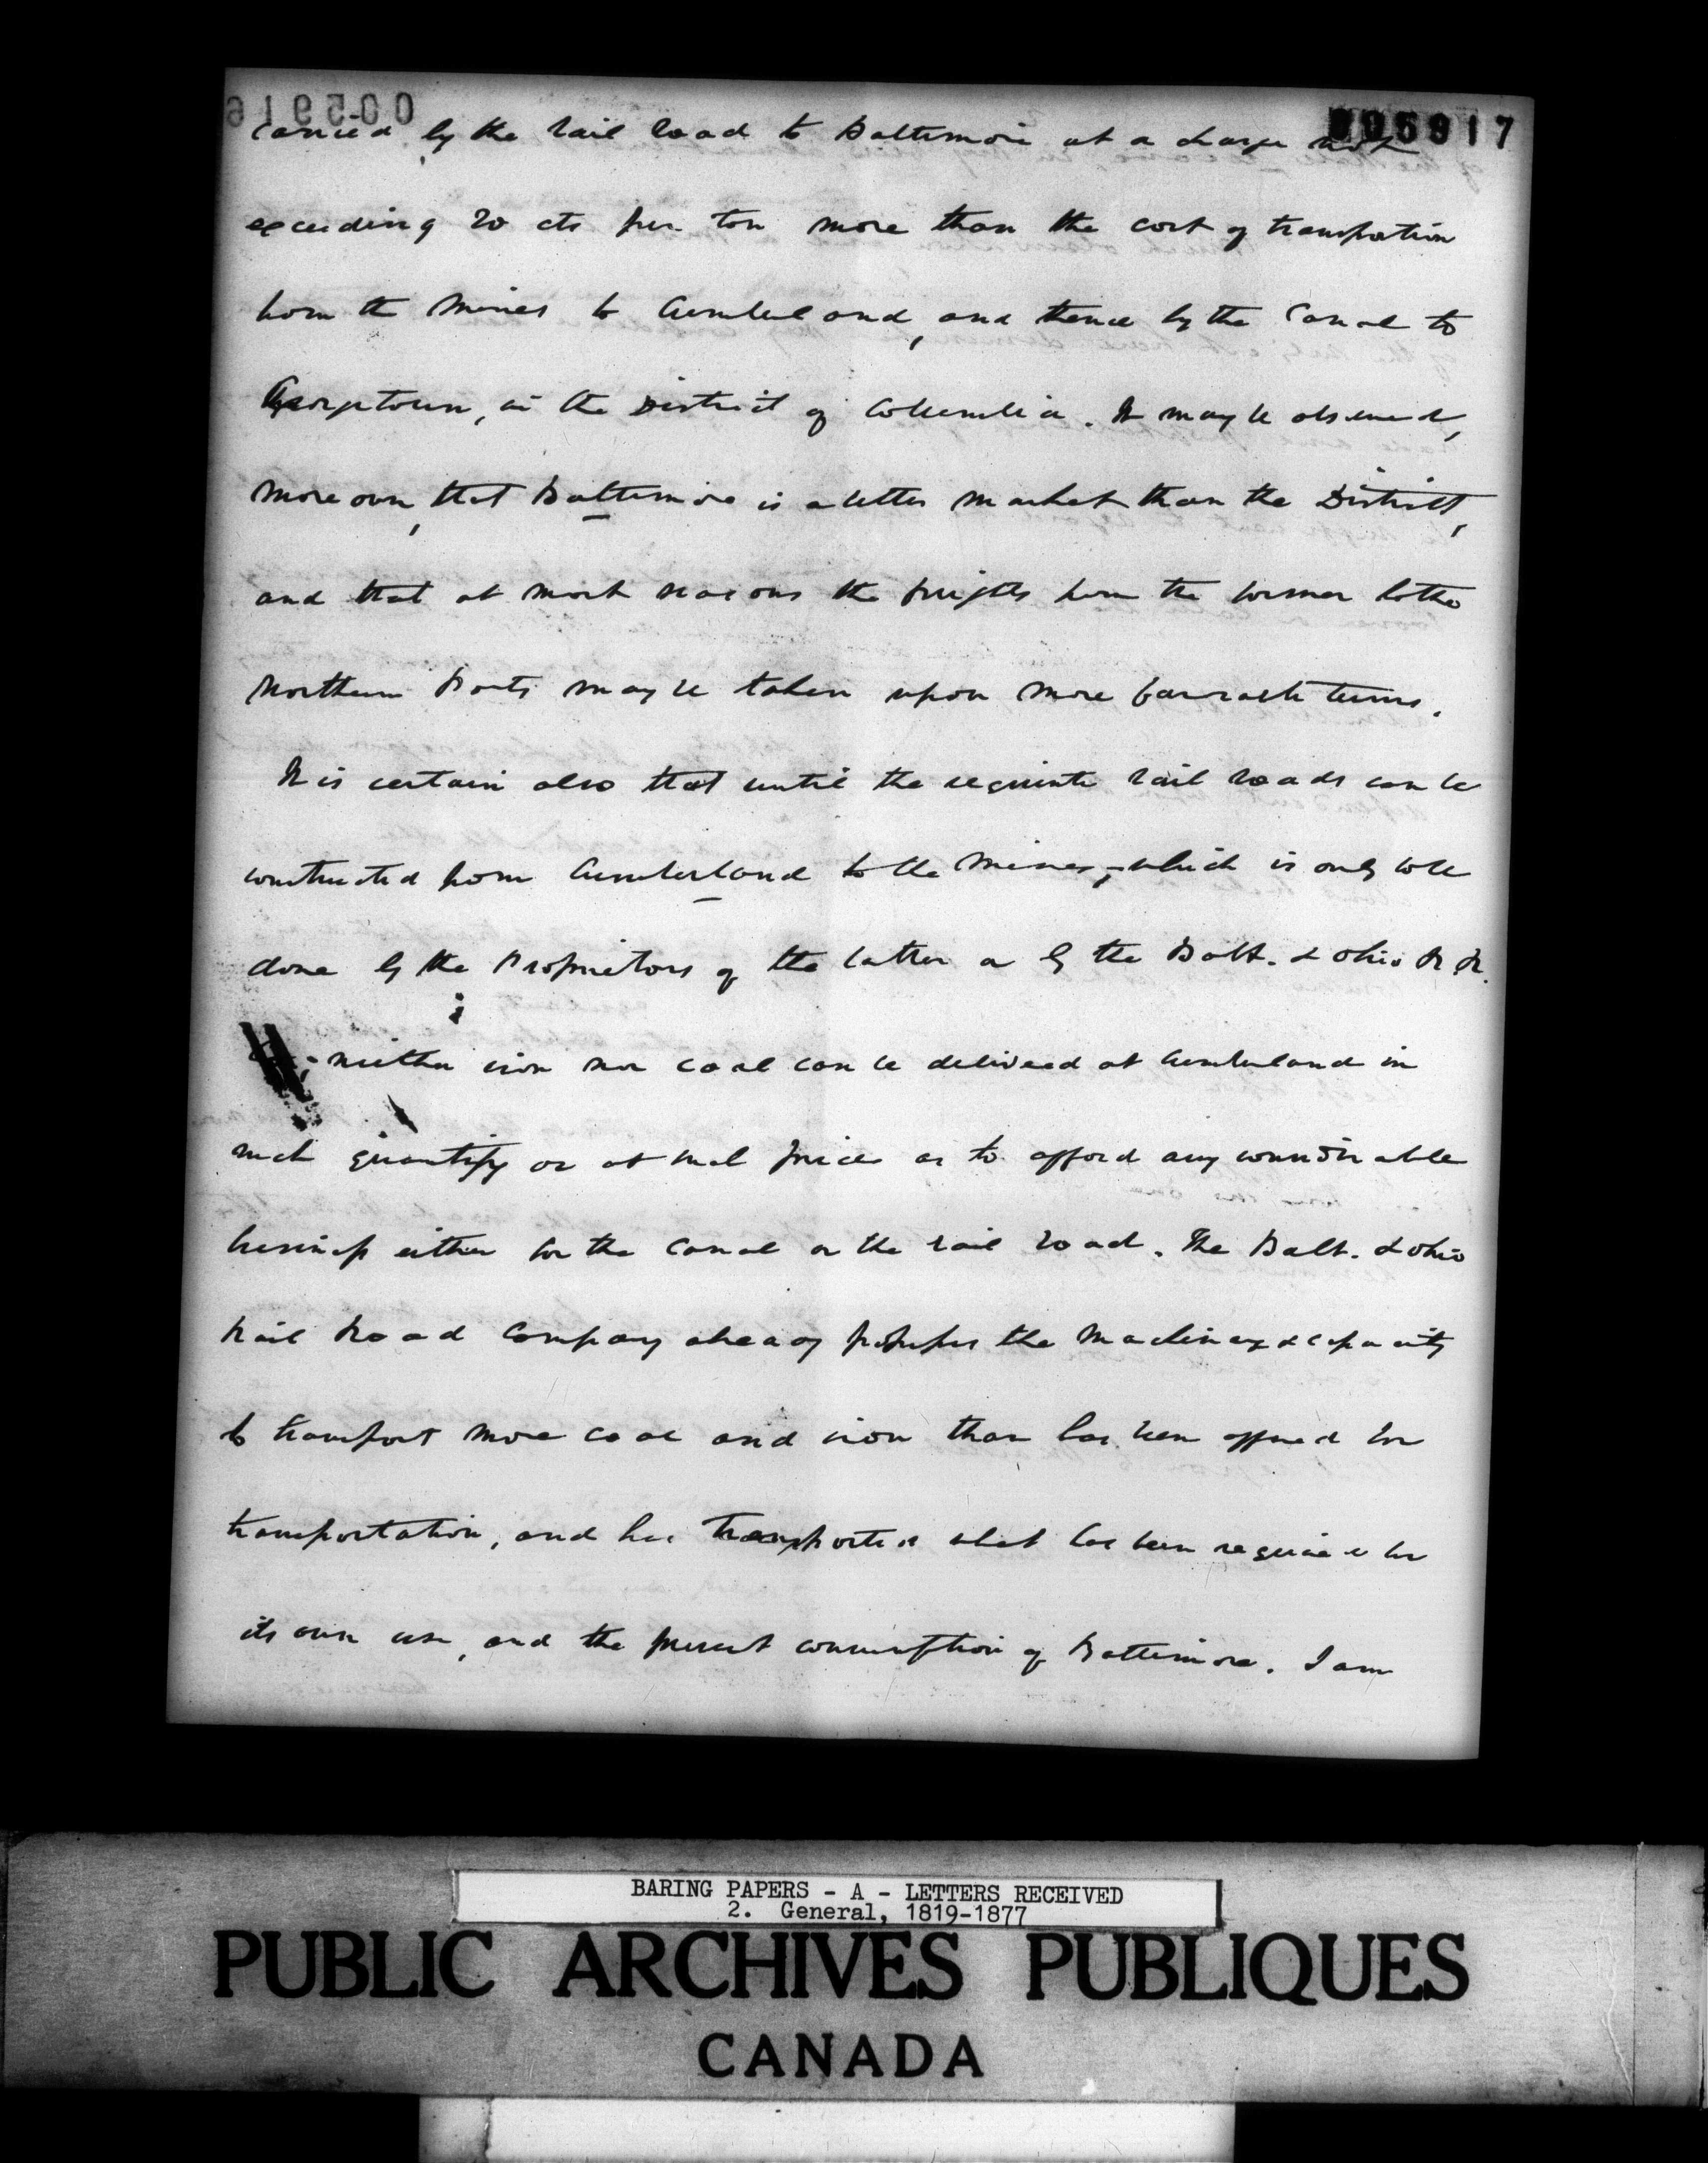 005916
005917
carried by the rail road to Baltimore at a charge not
exceeding 20 cts per ton more than the cost of transportation
from the mines to Cumberland, and thence by the Canal to
Georgetown, in the District of Columbia. It may be observed,
moreover, that Baltimore is a better market than the District,
and that at most seasons the freights from the former to the
Northern Ports may be taken upon more favorable terms.
It is certain also that until the requisite rail roads can be
constructed from Cumberland to the mines, - which is only to be
done by the Proprietors of the latter or by the Balt. & Ohio R. R.
- neither iron nor coal can be delivered at Cumberland in
such quantity or at such prices as to afford any considerable
business either for the Canal or the rail road. The Balt. & Ohio
Rail Road Company already possesses the machinery & capacity
to transport more coal and iron than has been offered for
transportation, and has transported what has been required for
its own use, and the present consumption of Baltimore. I am
BARING PAPERS - A - LETTERS RECEIVED
2. General, 1819-1877
PUBLIC ARCHIVES PUBLIQUES
CANADA